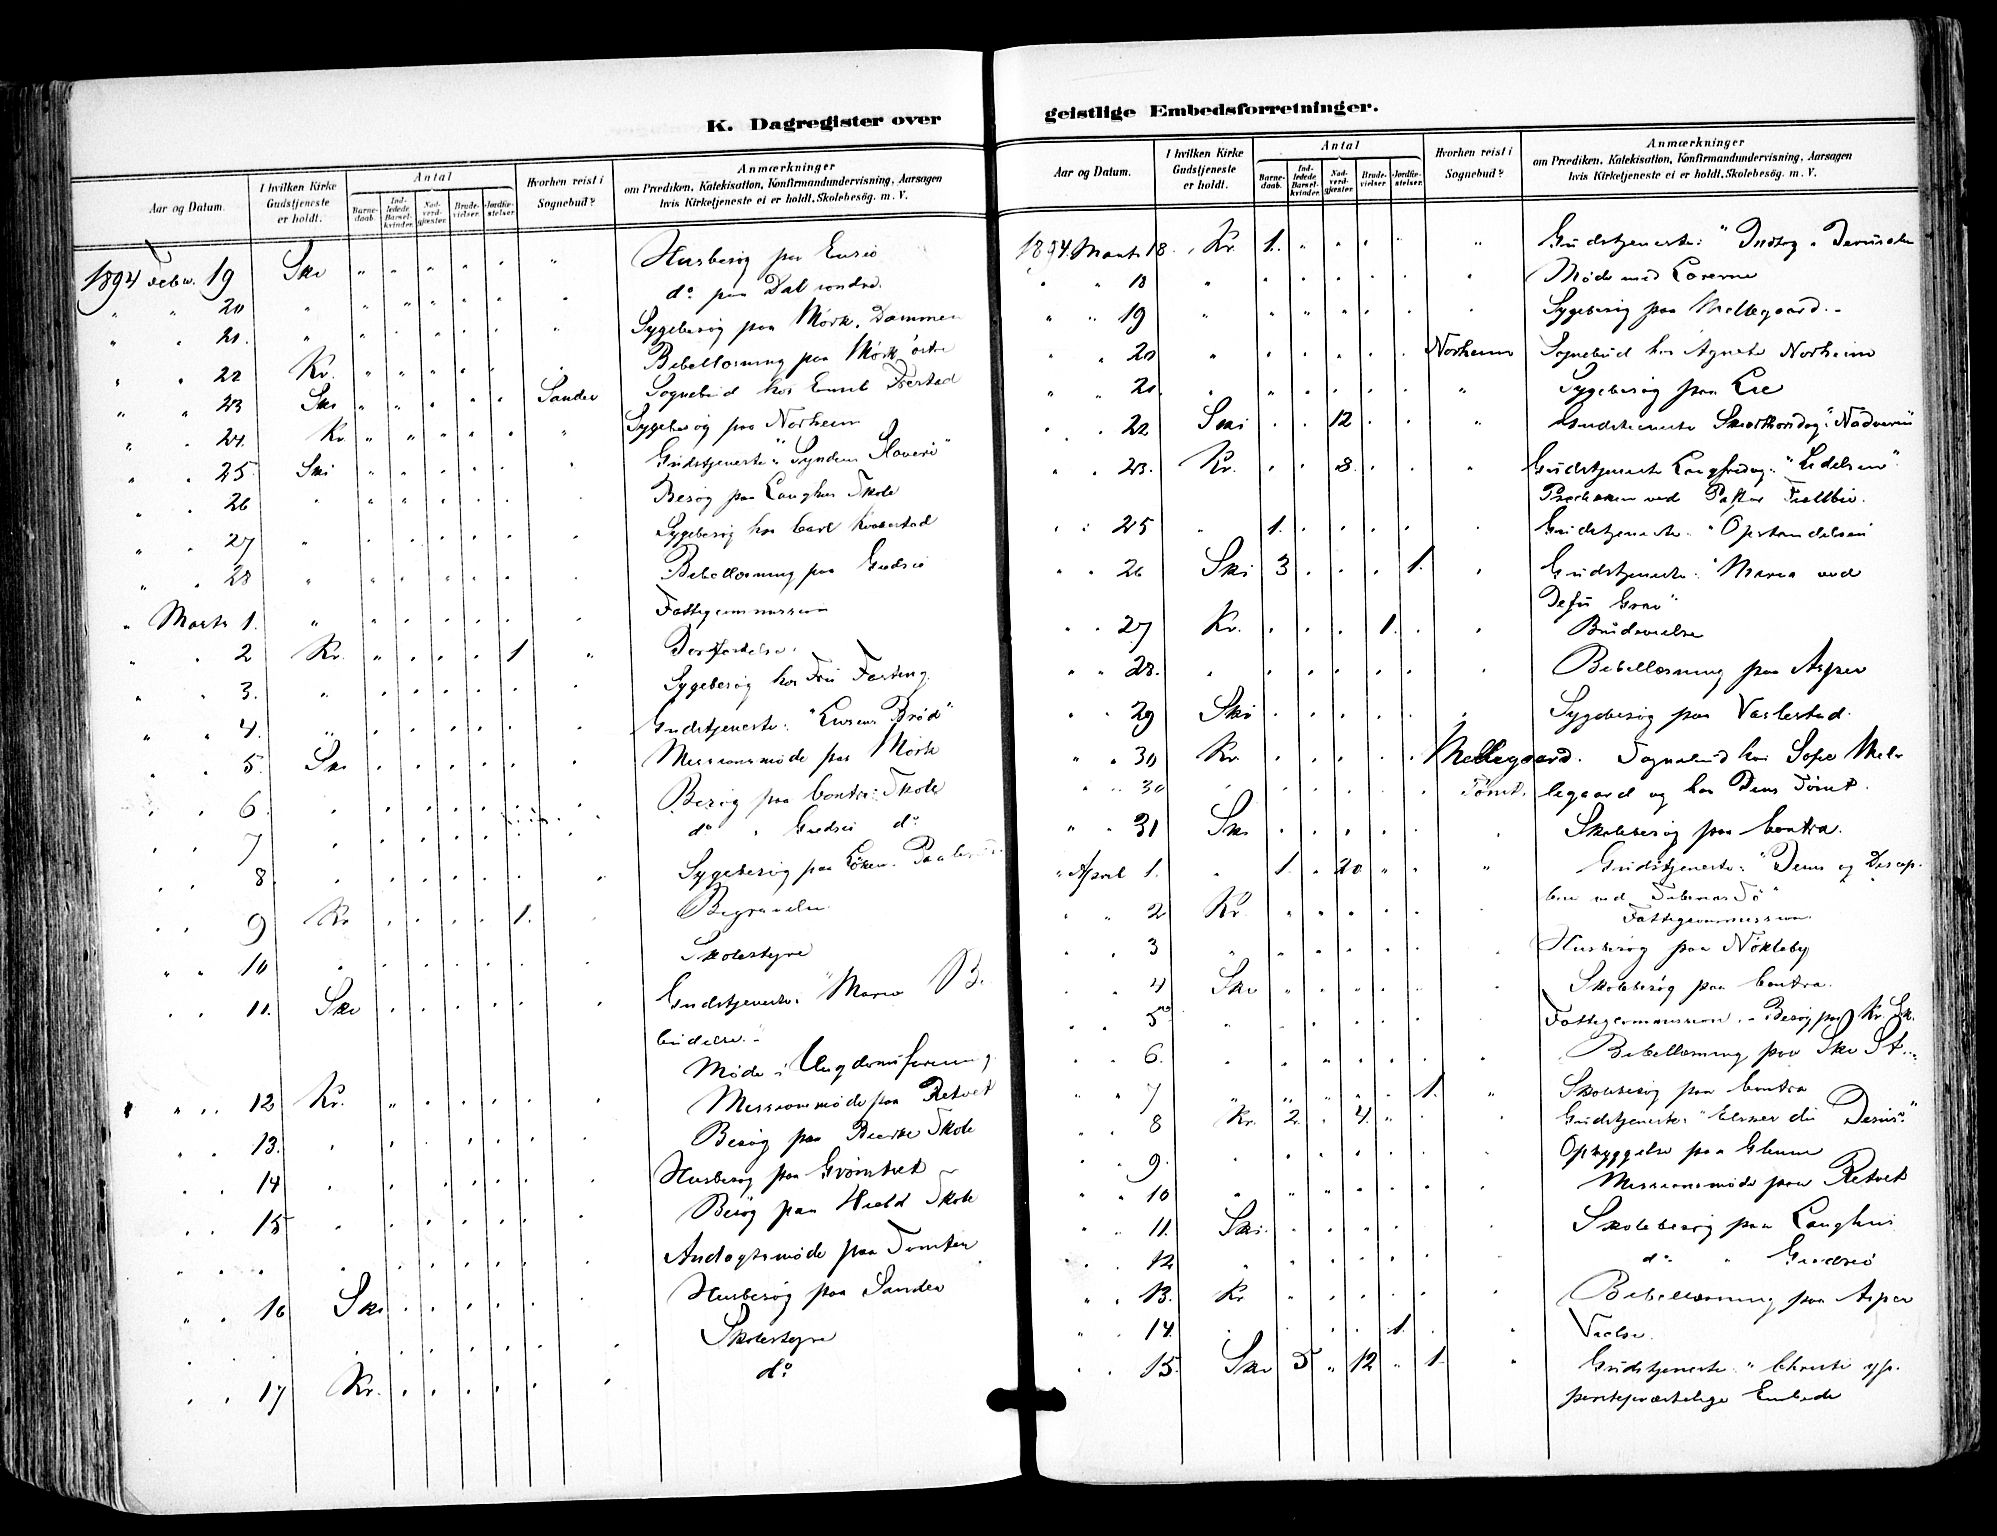 K. Dagregister over
Aar og Datum. I hvilken Kirke Gudstjeneste er holdt. Antal Barnedaab. Indledede Barselkvinder. Nadverdgjester. Brudevielser. Jordfæstelser. Hvorhen reist i Sognebud? Anmærkninger
om Prædiken, Katekisation, Konfirmandundervisning, Aarsagen
hvis Kirketjeneste ei er holdt, Skolebesøg. m. V.
1894 Febr. 19 Ski " " " " " " Husbesøg paa
" " 20 " " " " " " " do paa Dal søndre.
" " 21. " " " " " " " Sygebesøg paa Mørk, Dammen
" " 22 Kr. " " " " " . Bibellæsning paa Mørk østre
" " 23 Ski " " " " " Sander Sognebud hos Emil
" " 24. Kr. " " " " " " Sygebesøg paa Norheim
" " 25. Ski " " " " " " Gudstjeneste: "Syndens Slaveri"
" " 26 " " " " " " " Besøg paa Langhus Skole
" " 27 " " " " " " " Sygebesøg hos Carl
" " 28 " " " " " " " Bibellæsning paa
" Marts 1. " " " " " " " Fattigcommission
" " 2 Kr. " " " " 1 " Jordfæstelse.
" " 3. " " " " " " " Sygebesøg hos Fru Fasting.
" " 4. " " " " " " " Gudstjeneste: "Livsens Brød"
" " 5. Ski " " " " " " Missionsmøde paa Mørk
" " 6. " " " " " " " Besøg paa Contra Skole
" " 7 " " " " " " " do " do
" " 8. " " " " " " " Sygebesøg paa Løken.
" " 9 Kr " " " " 1. " Begravelse
" " 10 " " " " " " " Skolestyre
" " 11. Ski " " " " " " Gudstjeneste: "Mariæ B.
budelse."
Møde i Ungdomsforening
" " 12 Kr. " " " " " " Missionsmøde paa Retvet
" " 13. " " " " " " " Besøg paa Skole
" " 14 " " " " " " " Husbesøg paa
" " 15 " " " " " " " Besøg paa Skole
" " " " " " " " " " Andagtsmøde paa Tomten
" " 16 Ski " " " " " " Husbesøg paa Sander
" " " " " " " " " Skolestyre
" " 17 Kr. " " " " " " do
geistlige Embedsforretninger.
Aar og Datum. I hvilken Kirke Gudstjeneste er holdt. Antal Barnedaab. Indledede Barselkvinder. Nadverdgjester. Brudevielser. Jordfæstelser. Hvorhen reist i Sognebud? Anmærkninger
om Prædiken, Katekisation, Konfirmandundervisning, Aarsagen
hvis Kirketjeneste ei er holdt, Skolebesøg. m. V.
1894. Marts 18. Kr. 1. " " " " " Gudstjeneste: "Indtog i Jerusalem
" " 18 " " " " " " " Møde med Lærerne
" " 19 " " " " " " " Sygebesøg paa Mellegaard.
" " 20 " " " " " " Norheim Sognebud hos Agnete Norheim
" " 21. " " " " " " " Sygebesøg paa Lie
" " 22 Ski . . 12 . . " Gudstjeneste Skjærthorsdag: "Nadveren"
" " 23. Kr. . . 8. . . " Gudstjeneste Langfredag: "Lidelsen"
ved Pastor
" " 25 " 1. . . . . . Gudstjeneste: "Opstandelsen
" " 26 Ski 3 . . . 1. . Gudstjeneste: "Maria ved
Jesu Grav"
" " 27 Kr. . . . 1. . . Brudevielse
" " 28. . . . . . . . Bibellæsning paa Asper
" " 29 Ski . . . . . . Sygebesøg paa Vaslestad.
" " 30 Kr. . . . . . Mellegaard. Sognebud hos Sofie Mel-
" " 30 . . . . . . Tømt. legaard og hos Jens Tømt.
" " 31 Ski . . . . . . Skolebesøg paa Contra.
" April 1. " 1. . 20 " " " Gudstjeneste: "Jesus og Discip-
lene ved Tiberias Sø"
" " 2 Kr. " " " " " Fattigcommission.
" " 3 " " " " " " " Husbesøg paa Nökleby
" " 4 Ski " " " " " . Skolebesøg paa Contra.
" " 5 " . . . . . . Fattigcommission. - Besøg paa Kr. Sk.
" " 6. . . . " . . . Bibellæsning paa Ski St.
" " 7 " " " " " 1. " Skolebesøg paa Contra
" " 8 Kr. 2. . 4. " . . Gudstjeneste: "Elsker du Jesus"
" " 9. . . . . . . . Opbyggelse paa Glenne
" " 10 " . " " . . . Missionsmøde paa Retvet
" " 11. Ski. . . . . . . Skolebesøg paa Langhus
" " 12 " . . . . . . do "
" " 13. Kr " . . . . . Bibellæsning paa Asper
" " 14. . . . . . 1. . " Vielse.
" " 15. Ski 5 " 12 " 1. " Gudstjeneste: "Christi ypperstepræstelige Embede